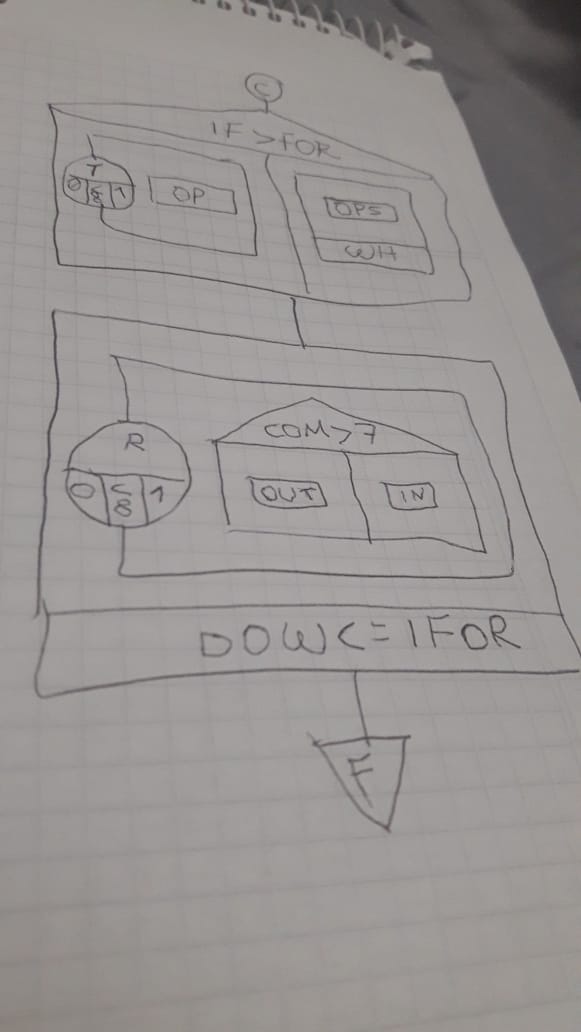 C
IF > FOR
T
0 <8 1
OP
OPS
WH
R
0 <8 1
COM > 7
OUT
IN
DOW <= IFOR
F